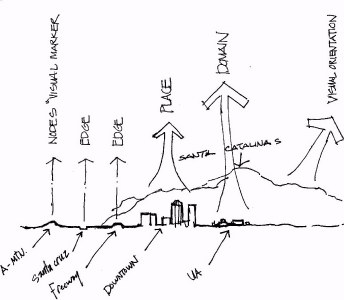 NODES "VISUAL MARKER
EDGE
EDGE
PLACE
DOMAIN
VISUAL ORIENTATION
SANTA CATALINAS
A-MTN.
Santa Cruz
Freeway
DOWNTOWN
UA